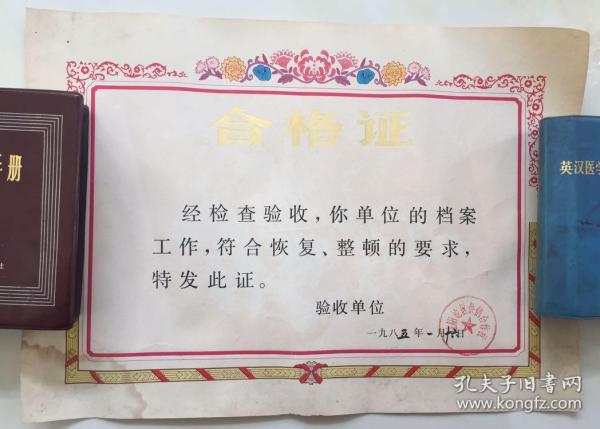 合格证
经检查验收，你单位的档案
工作，符合恢复、整顿的要求，
特发此证。
验收单位
一九八五年一月十六日
册
英汉医学
孔夫子旧书网
www.kongfz.com